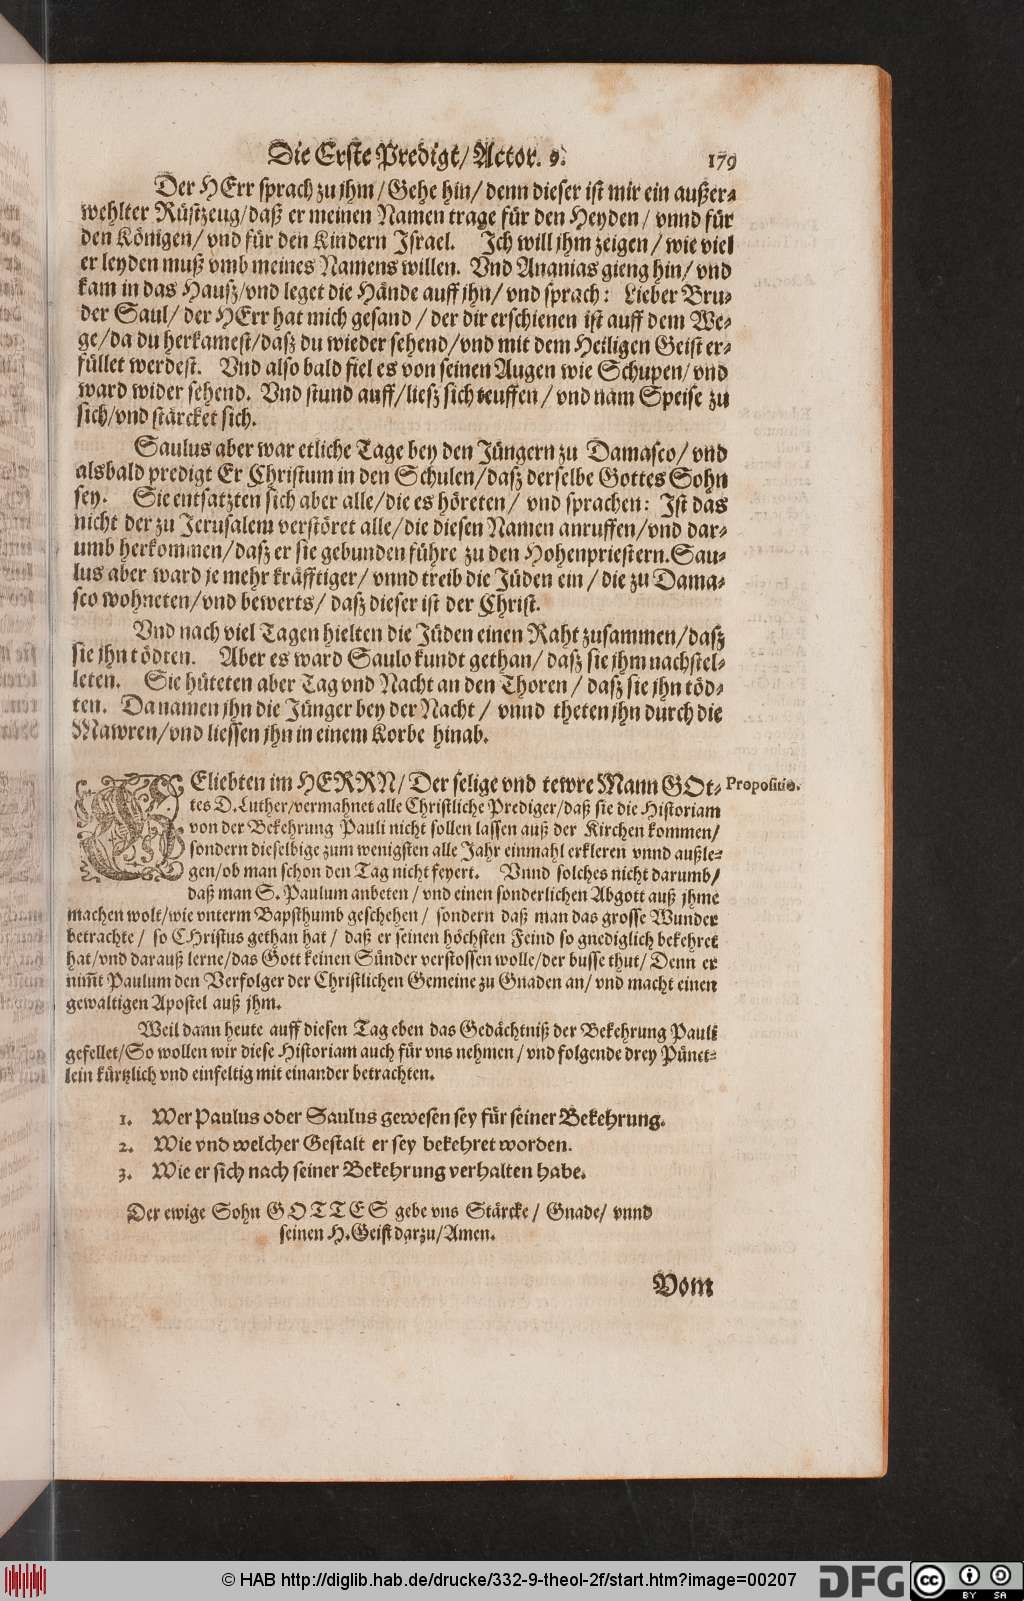 Die Erste Predigt/ Actor. 9. 179
Der HErr sprach zu jhm/ Gehe hin/ denn dieser ist mir ein außer-
wehlter Rüstzeug/ daß er meinen Namen trage für den Heyden/ vnnd für
den Königen/ vnd für den Kindern Israel. Ich will jhm zeigen/ wie viel
er leyden muß vmb meines Namens willen. Vnd Ananias gieng hin/ vnd
kam in das Hauß/ vnd leget die Hände auff jhn/ vnd sprach: Lieber Bru-
der Saul/ der HErr hat mich gesand/ der dir erschienen ist auff dem We-
ge/ da du herkamest/ daß du wieder sehend/ vnd mit dem Heiligen Geist er-
füllet werdest. Vnd also bald fiel es von seinen Augen wie Schupen/ vnd
ward wider sehend. Vnd stund auff/ ließ sich teuffen/ vnd nam Speise zu
sich/ vnd stärcket sich.
Saulus aber war etliche Tage bey den Jüngern zu Damasco/ vnd
alsbald predigt Er Christum in den Schulen/ daß derselbe Gottes Sohn
sey. Sie entsatzten sich aber alle/ die es höreten/ vnd sprachen: Ist das
nicht der zu Jerusalem verstöret alle/ die diesen Namen anruffen/ vnd dar-
umb herkommen/ daß er sie gebunden führe zu den Hohenpriestern. Sau-
lus aber ward je mehr kräfftiger/ vnnd treib die Jüden ein/ die zu Dama-
sco wohneten/ vnd bewerts/ daß dieser ist der Christ.
Vnd nach viel Tagen hielten die Jüden einen Raht zusammen/ daß
sie jhn tödten. Aber es ward Saulo kundt gethan/ daß sie jhm nachstel-
leten. Sie hüteten aber Tag vnd Nacht an den Thoren/ daß sie jhn töd-
ten. Da namen jhn die Jünger bey der Nacht/ vnnd theten jhn durch die
Mawren/ vnd liessen jhn in einem Korbe hinab.
GEliebten im HERRN/ Der selige vnd tewre Mann GOt- Propositio.
tes D. Luther/ vermahnet alle Christliche Prediger/ daß sie die Historiam
von der Bekehrung Pauli nicht sollen lassen auß der Kirchen kommen/
sondern dieselbige zum wenigsten alle Jahr einmahl erkleren vnnd außle-
gen/ ob man schon den Tag nicht feyert. Vnnd solches nicht darumb/
daß man S. Paulum anbeten/ vnd einen sonderlichen Abgott auß jhme
machen wolt/ wie vnterm Bapsthumb geschehen/ sondern daß man das grosse Wunder
betrachte/ so CHristus gethan hat/ daß er seinen höchsten Feind so gnediglich bekehret
hat/ vnd darauß lerne/ das Gott keinen Sünder verstossen wolle/ der busse thut/ Denn er
nim̃t Paulum den Verfolger der Christlichen Gemeine zu Gnaden an/ vnd macht einen
gewaltigen Apostel auß jhm.
Weil dann heute auff diesen Tag eben das Gedächtniß der Bekehrung Pauli
gefellet/ So wollen wir diese Historiam auch für vns nehmen/ vnd folgende drey Pünct-
lein kürtzlich vnd einfeltig mit einander betrachten.
1. Wer Paulus oder Saulus gewesen sey für seiner Bekehrung.
2. Wie vnd welcher Gestalt er sey bekehret worden.
3. Wie er sich nach seiner Bekehrung verhalten habe.
Der ewige Sohn GOTTES gebe vns Stärcke/ Gnade/ vnnd
seinen H. Geist darzu/ Amen.
Vom
© HAB http://diglib.hab.de/drucke/332-9-theol-2f/start.htm?image=00207
DFG
cc BY SA